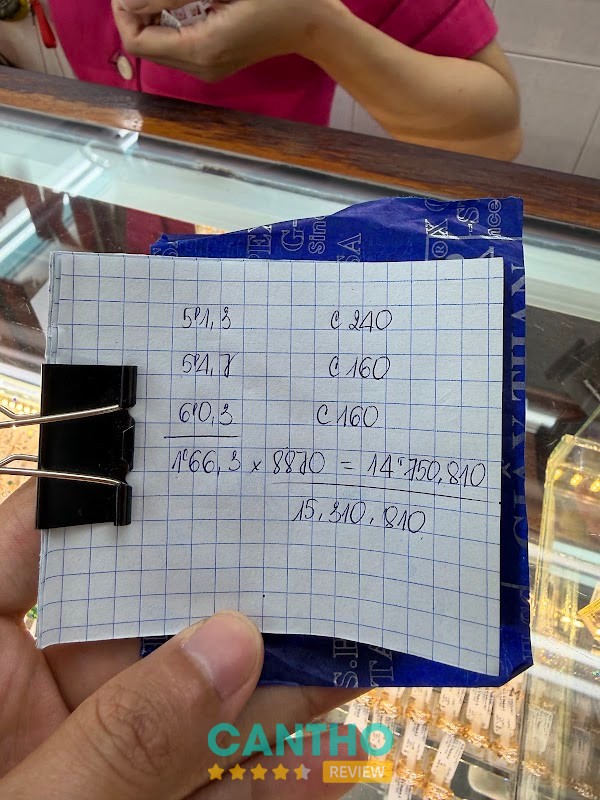 5p1,3 C 240
5p4,7 C 160
6p0,3 C 160
1c66,3 × 8870 = 14'750,810
15,310,810
Since
CANTHO
REVIEW